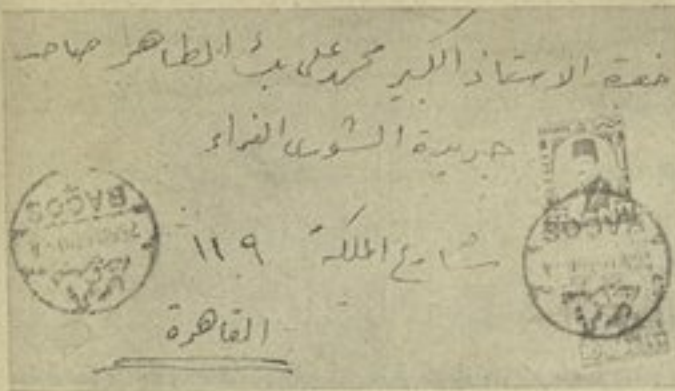 حضرة الاستاذ الكبير محمد علي بك الطاهر صاحب
جريدة الشورى الغراء
شارع الملكة ١١٩
القاهرة
BACOS
BACOS